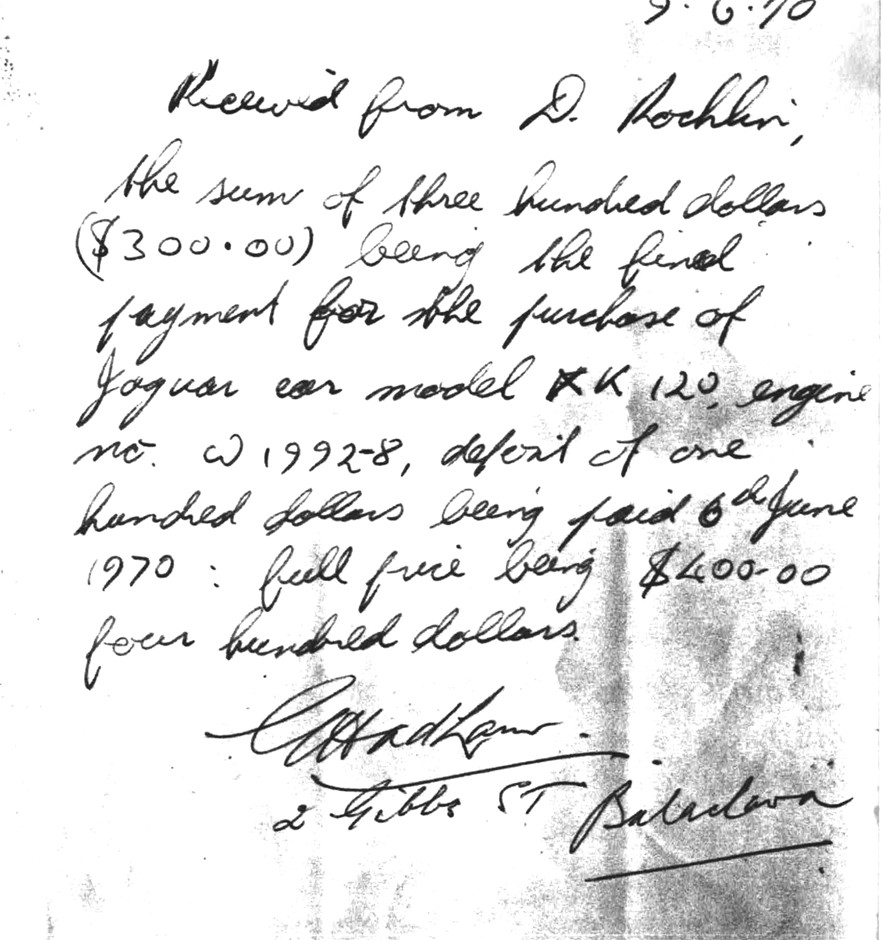 9.6.70
Received from D. Rochlin,
the sum of three hundred dollars
($300.00) being the final
payment for the purchase of
Jaguar car model XK 120, engine
no. W 1992-8, deposit of one
hundred dollars being paid 6th June
1970 : full price being $400-00
four hundred dollars.
2 Gibbs ST Balaclava